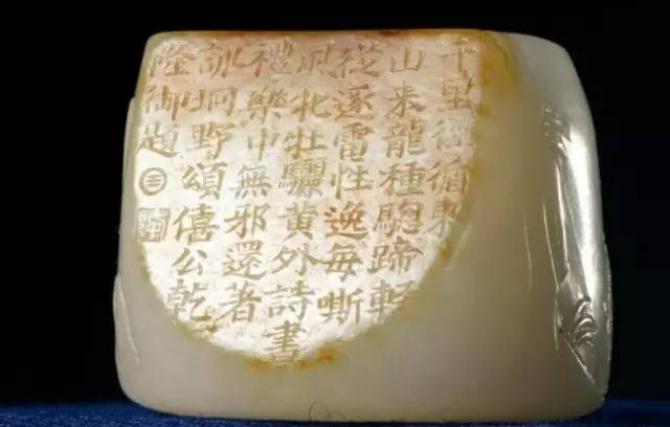 千里循
山来龍種駒蹄輕
從逐雷性逸每嘶
風牝牡驪黃外詩書
禮樂中無邪還著
訓坰野頌僖公乾
隆御題